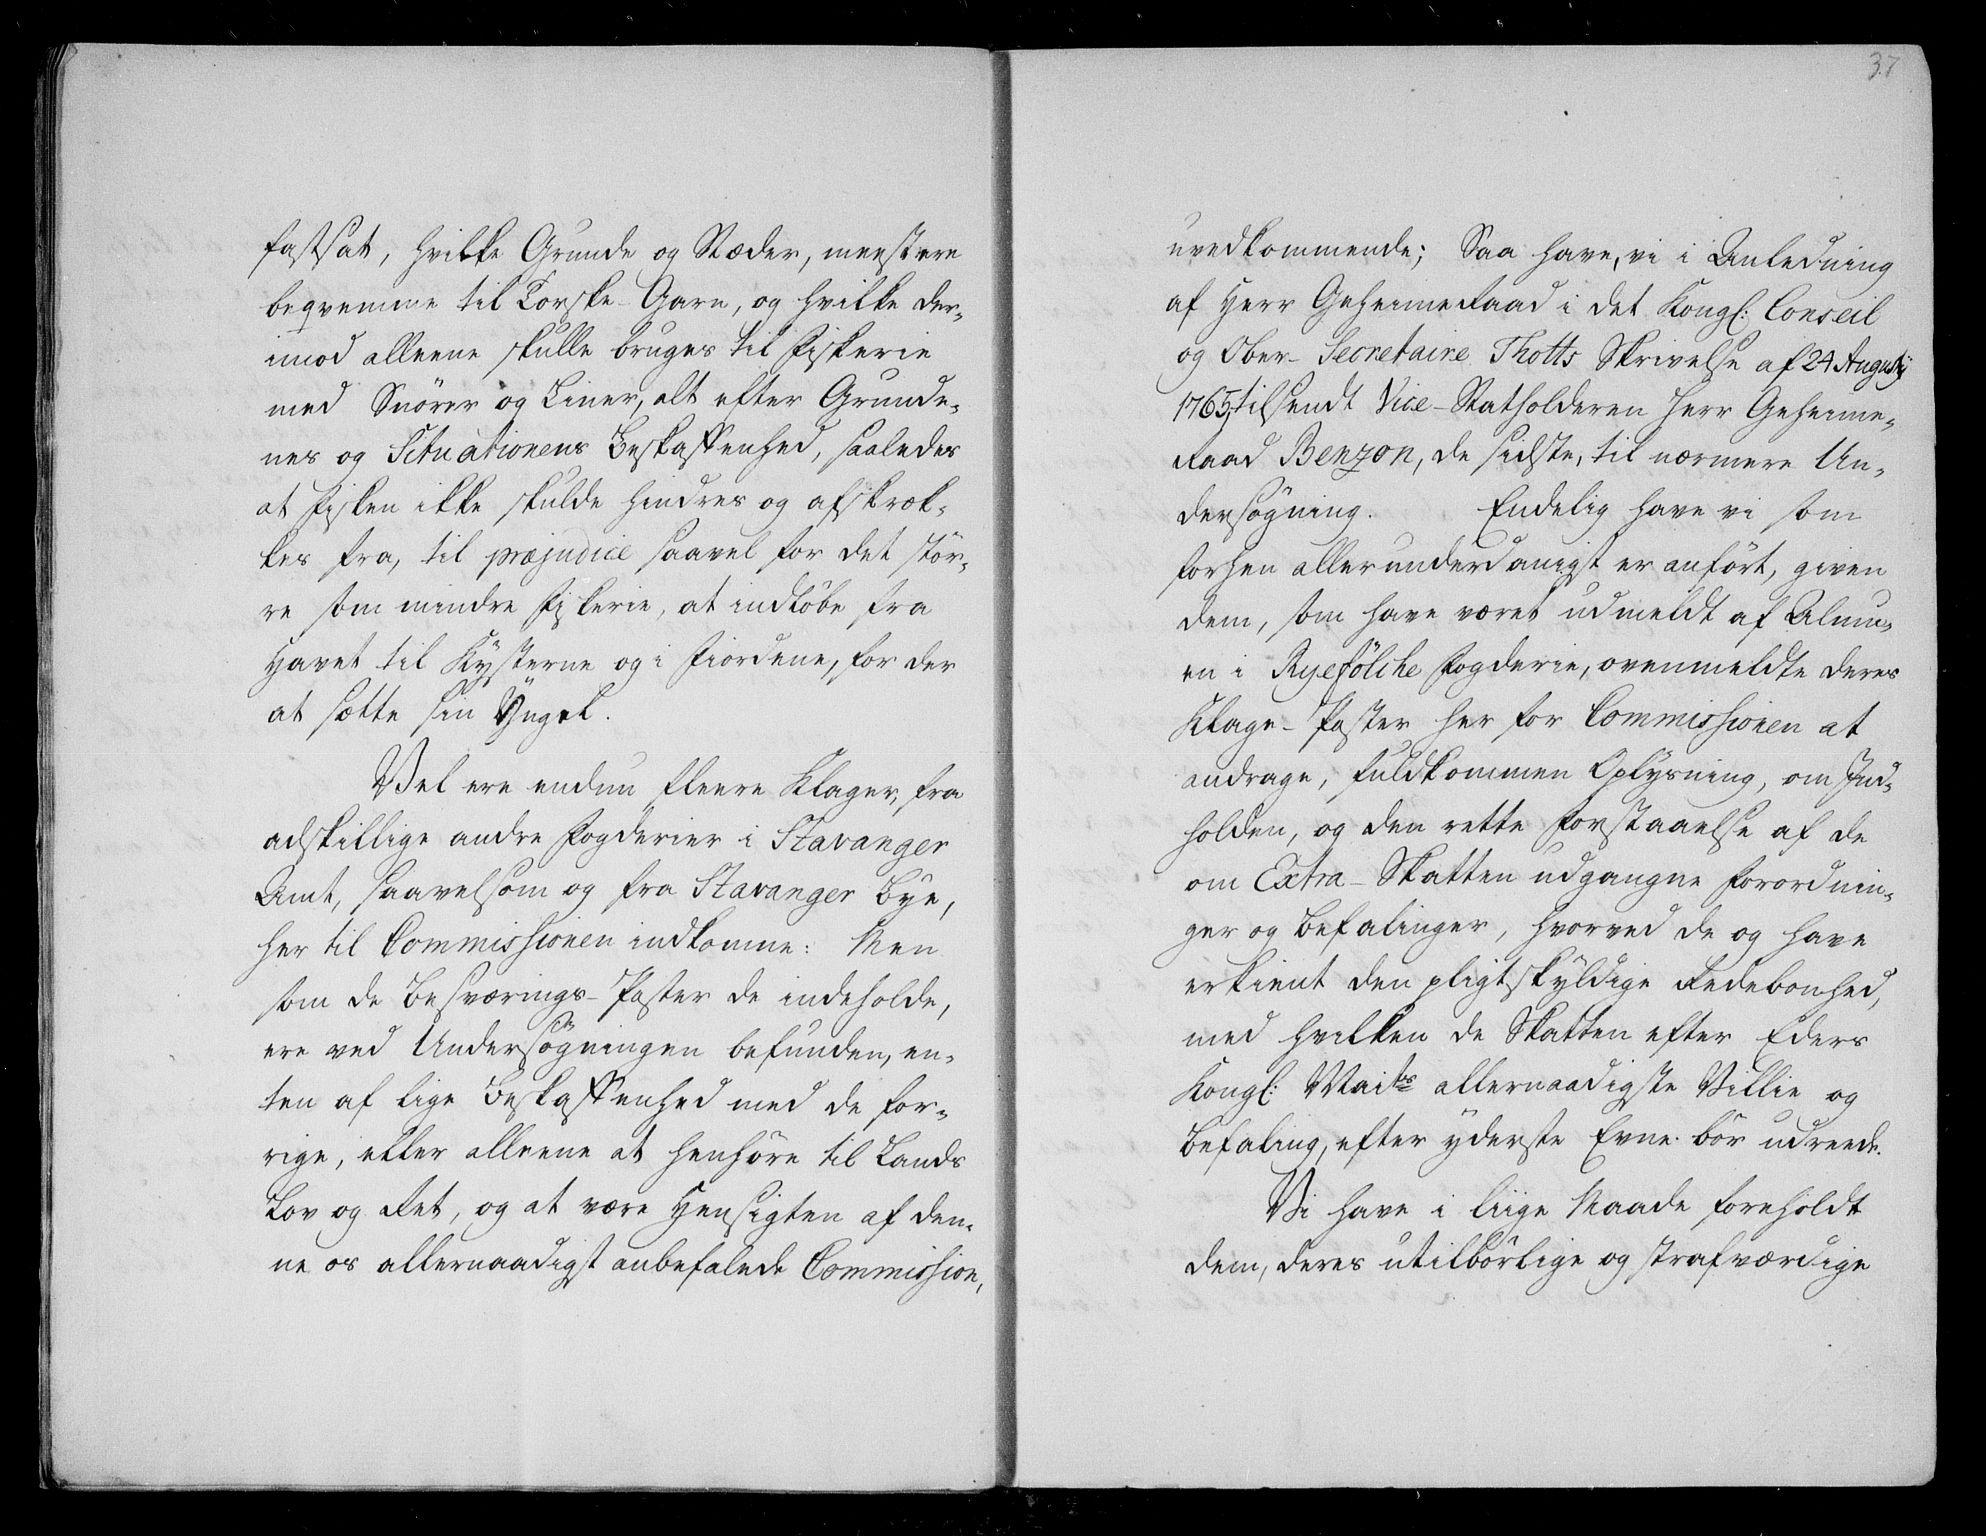 fastsat, hvilke Grunde og Stæder, meest ere
beqvemme til Torske-Garn, og hvilke der-
imod alleene skulle bruges til Fiskerie
med Snörer og Liner, alt efter Grunde-
nes og Situationens Beskaffenhed, saaledes
at Fisken ikke skulde hindres og afskræk-
kes fra, til præjudice saavel for det stör-
re som mindre Fiskerie, at indlöbe fra
Havet til Kysterne og i Fiordene, for der
at sætte sin Yngel.
Vel ere endnu fleere Klager, fra
adskillige andre Fogderier i Stavanger
Amt, saavelsom og fra Stavanger Bye,
her til Commissionen indkomne: Men
som de Besværings-Poster de indeholde,
ere ved Undersögningen befunden, en-
ten af lige Beskaffenhed med de for-
rige, eller alleene at henhöre til Lands
Lov og Ret, og at være Hensigten af den-
ne os allernaadigst anbefalede Commission,
37
uvedkommende; Saa have, vi i Anledning
af Herr Geheimeraad i det Kongl: Conseil
og Ober-Secretaire Thotts Skrivelse af 24 Augusty
1765, tilsendt Vice-Statholderen Herr Geheime-
raad Benzon, de sidste, til nærmere Un-
dersögning. Endelig have vi som
forhen allerunderdanigst er anfört, given
dem, som have været udmeldt af Almu-
en i Ryefölche Fogderie, ovenmeldte deres
Klage-Poster her for Commissionen at
andrage, fuldkommen Oplysning, om Ind-
holden, og den rette Forstaaelse af de
om Extra-Skatten udgangne Forordnin-
ger og Befalinger, hvorved de og have
erkient den pligtskyldige Redebonhed,
med hvilken de Skatten efter Eders
Kongl: Maits allernaadigste Villie og
Befaling, efter yderste Evne bör udreede.
Vi have i liige Maade foreholdt
dem, deres utilbörlige og strafværdige